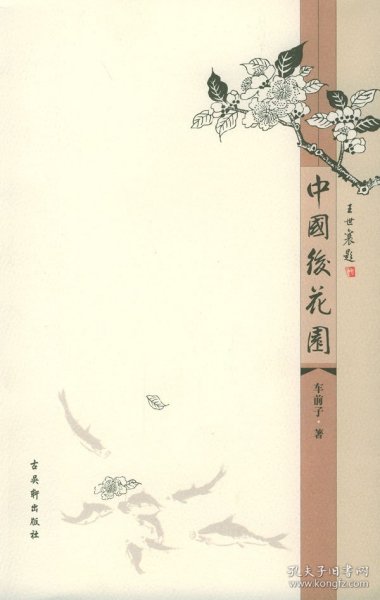 中國後花園
王世襄题
车前子·著
古吴轩出版社
孔夫子旧书网
www.kongfz.com